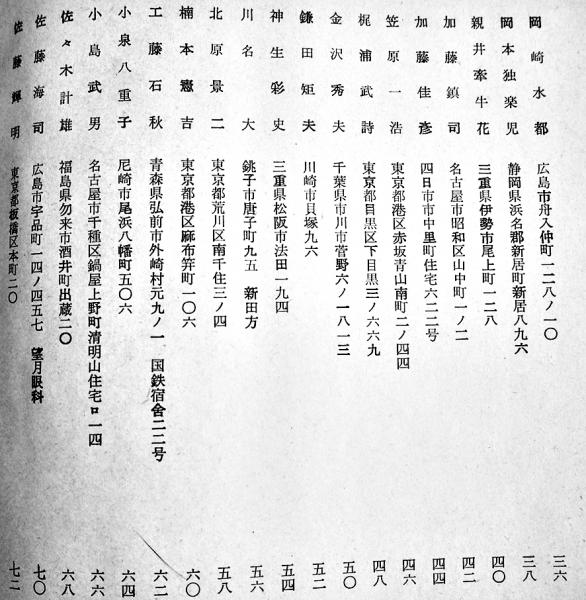 岡崎水都 広島市舟入仲町一二八ノ一〇 三六
岡本独楽児 静岡県浜名郡新居町新居八九六 三八
親井牽牛花 三重県伊勢市尾上町一二八 四〇
加藤鎮司 名古屋市昭和区山中町一ノ二 四二
加藤佳彦 四日市市中里町住宅六二二号 四四
笠原一浩 東京都港区赤坂青山南町二ノ四四 四六
梶浦武詩 東京都目黒区下目黒三ノ六六九 四八
金沢秀夫 千葉県市川市菅野六ノ一八一三 五〇
鎌田矩夫 川崎市貝塚九六 五二
神生彩史 三重県松阪市法田一九四 五四
川名大 銚子市唐子町九五 新田方 五六
北原景二 東京都荒川区南千住三ノ四 五八
楠本憲吉 東京都港区麻布笄町一〇六 六〇
工藤石秋 青森県弘前市外崎村元九ノ一 国鉄宿舎二二号 六二
小泉八重子 尼崎市尾浜八幡町五〇六 六四
小島武男 名古屋市千種区鍋屋上野町清明山住宅ロ一四 六六
佐々木計雄 福島県勿来市酒井町出蔵二〇 六八
佐藤海司 広島市宇品町一四ノ四五七 望月眼科 七〇
佐藤輝明 東京都板橋区本町二〇 七二